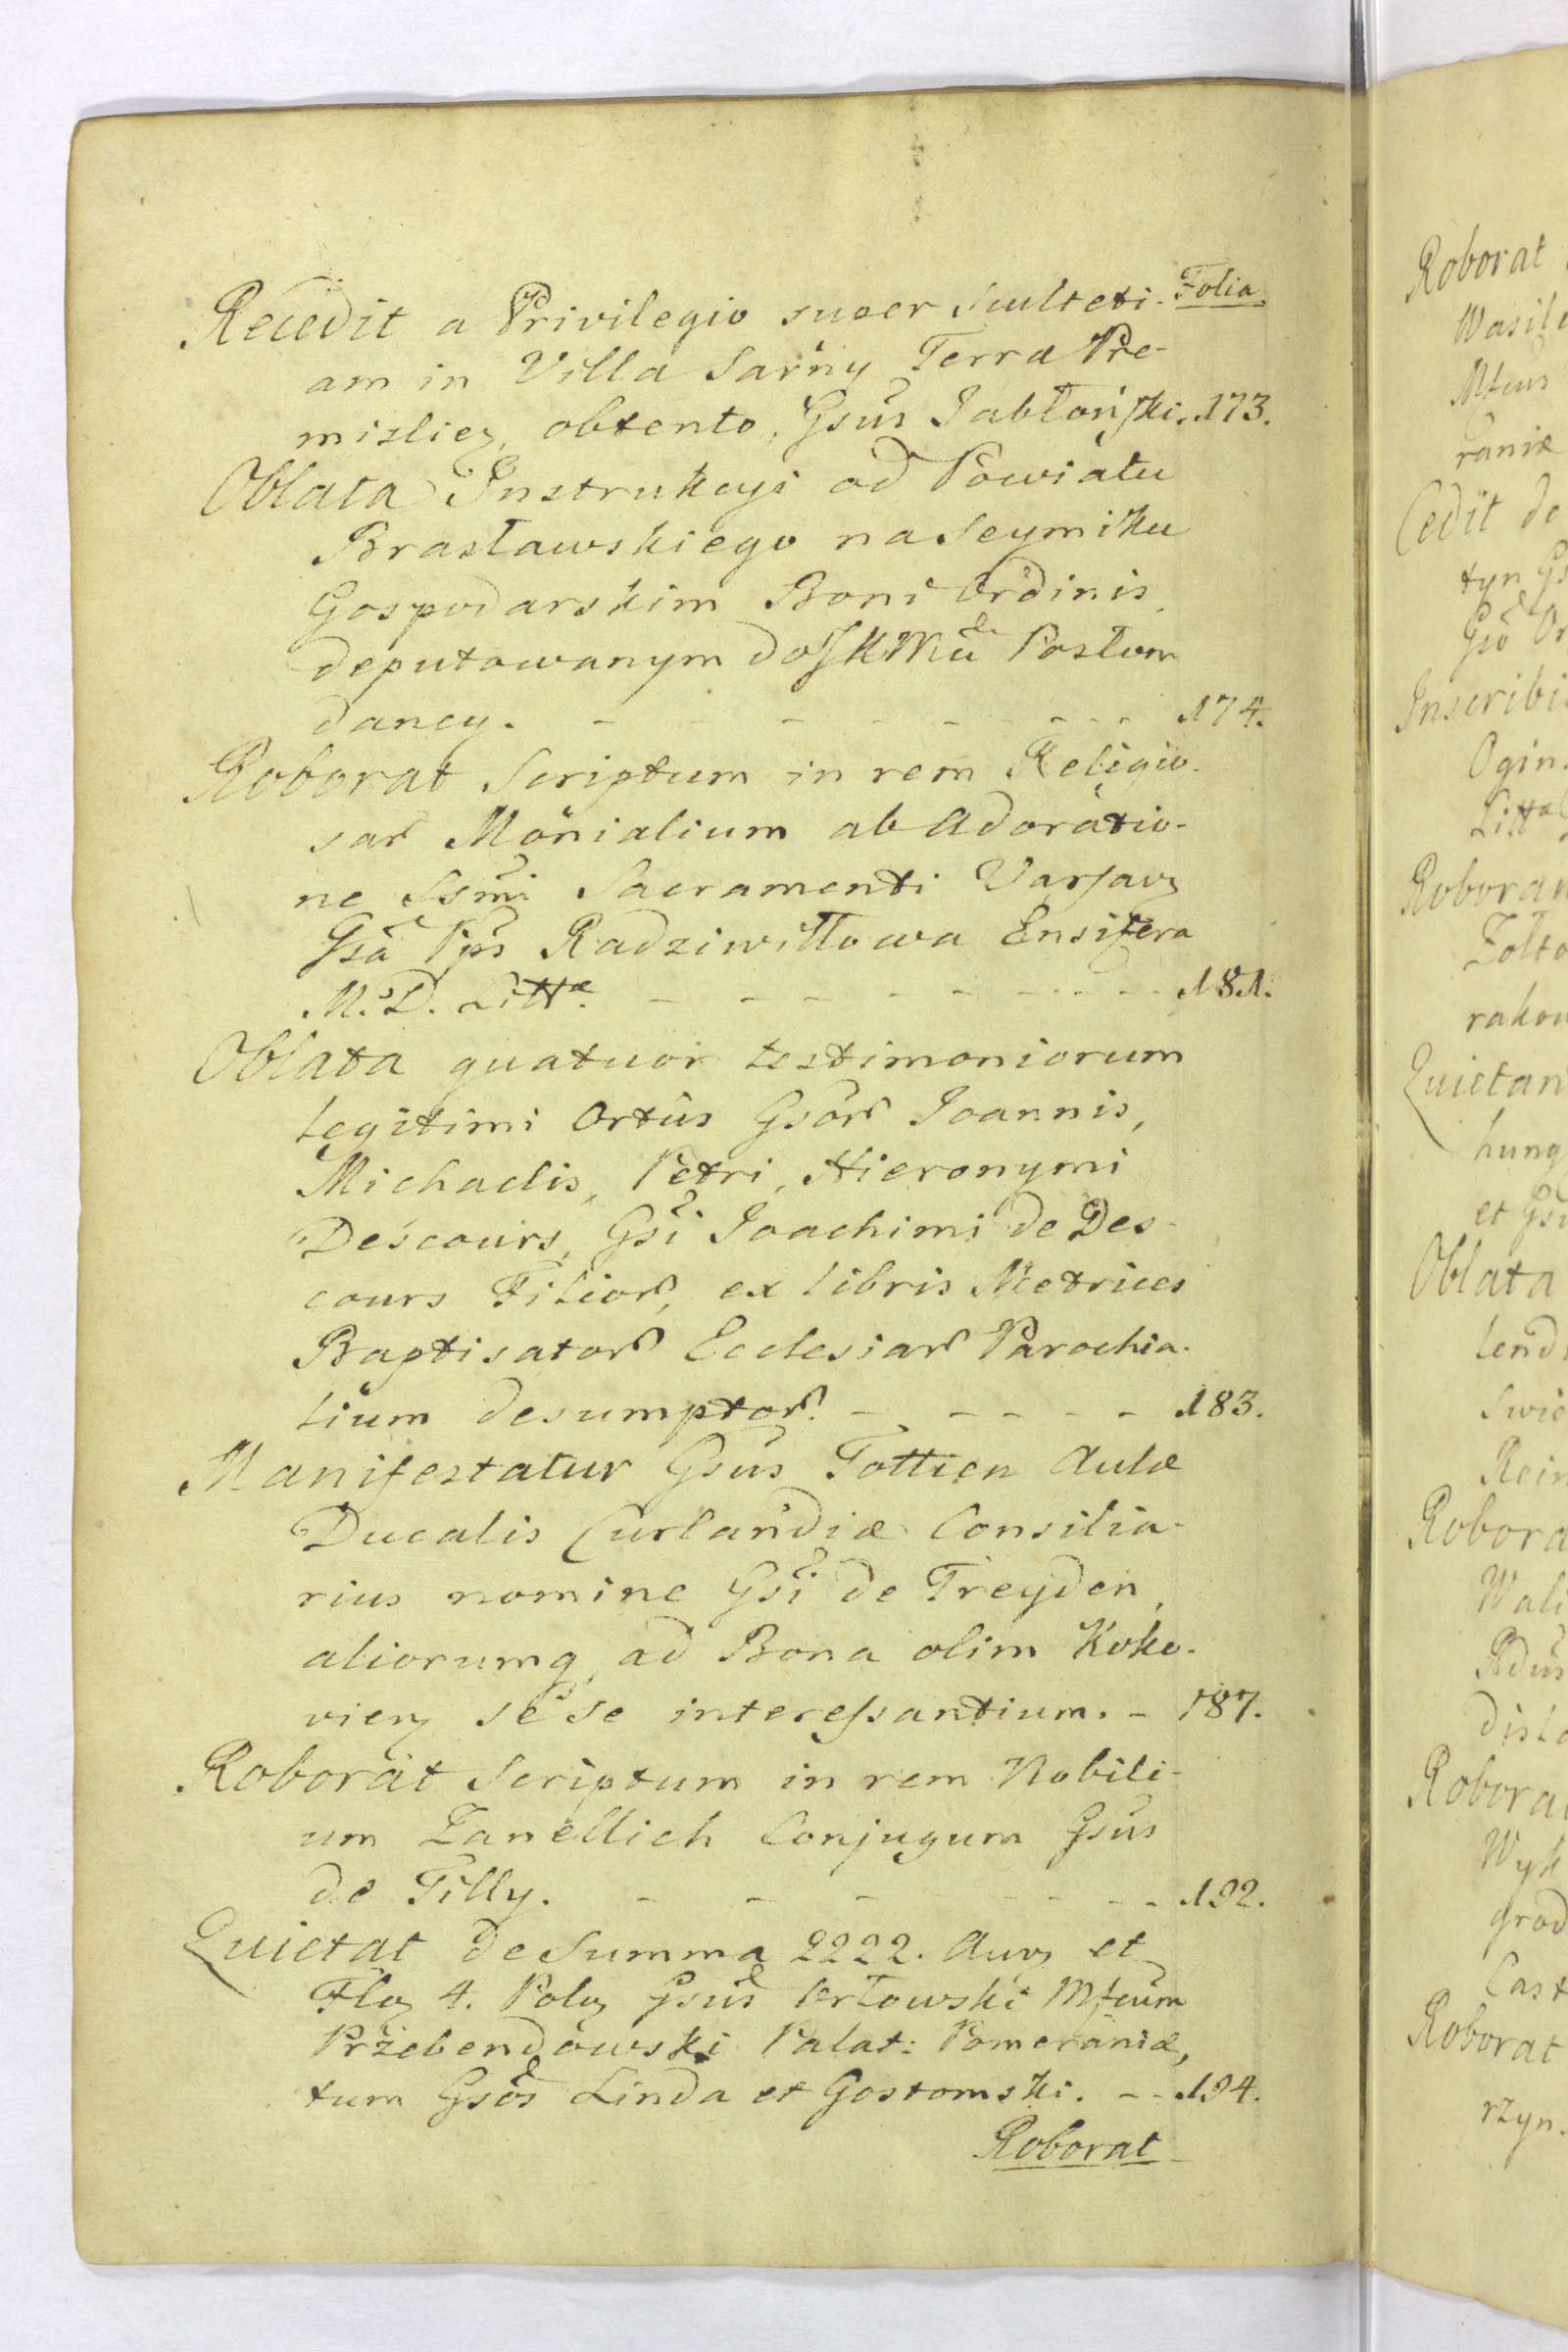 Folia
Recedit a Privilegio super Sculteti-
am in Villa Sarny Terræ Pre-
misliez, obtento, Gsus Jabłoński. 173.
Oblata Instrukcyi od Powiatu
Brasławskiego na Seymiku
Gospodarskim Boni Ordinis,
deputowanym do JKMci Posłom
daney. - - - - - - - 174.
Roborat Scriptum in rem Religio-
sar Monialium ab Adoratio-
ne Ssmi Sacramenti Varsavz
Gsa Pps Radziwiłłowa Ensifera
M. D. Littæ. - - - - - - - 181.
Oblata quatuor testimoniorum
legitimi Ortus Gsor Joannis,
Michaelis, Petri, Hieronymi
Descours, Gsi Joachimi de Des-
cours Filior, ex libris Metrices
Baptisator Ecclesiar Parochia-
lium desumptor. - - - - - 183.
Manifestatur Gsus Tottien Aulæ
Ducalis Curlandiæ Consilia-
rius nomine Gsi de Treyden,
aliorumq, ad Bona olim Koko-
vienz sese interessantium. - 187.
Roborat Scriptum in rem Nobili-
um Zanellich Conjugum Gsus
de Tilly. - - - - - - 192.
Quietat de Summa 2222. Aurz et
Floz 4. Polz Gsus Orłowski Mfcum
Przebendowski Palat: Pomeraniæ,
tum Gsos Linda et Gostomski. - - 194.
Roborat
Roborat
Mfcus
raniæ
Cedit de
tyn Gs
Ogin.
Littæ
Roboran
rakow
Quietan
hung
et Gsu
Oblata
lend
Rein
Robora
Robora
Wyk
grod
Cast
Roborat
rzyn.